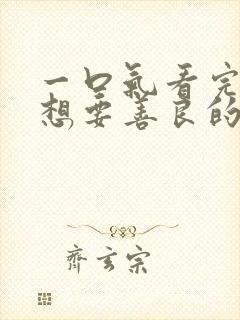 一口氣看完
想要善良的
齊玄宗